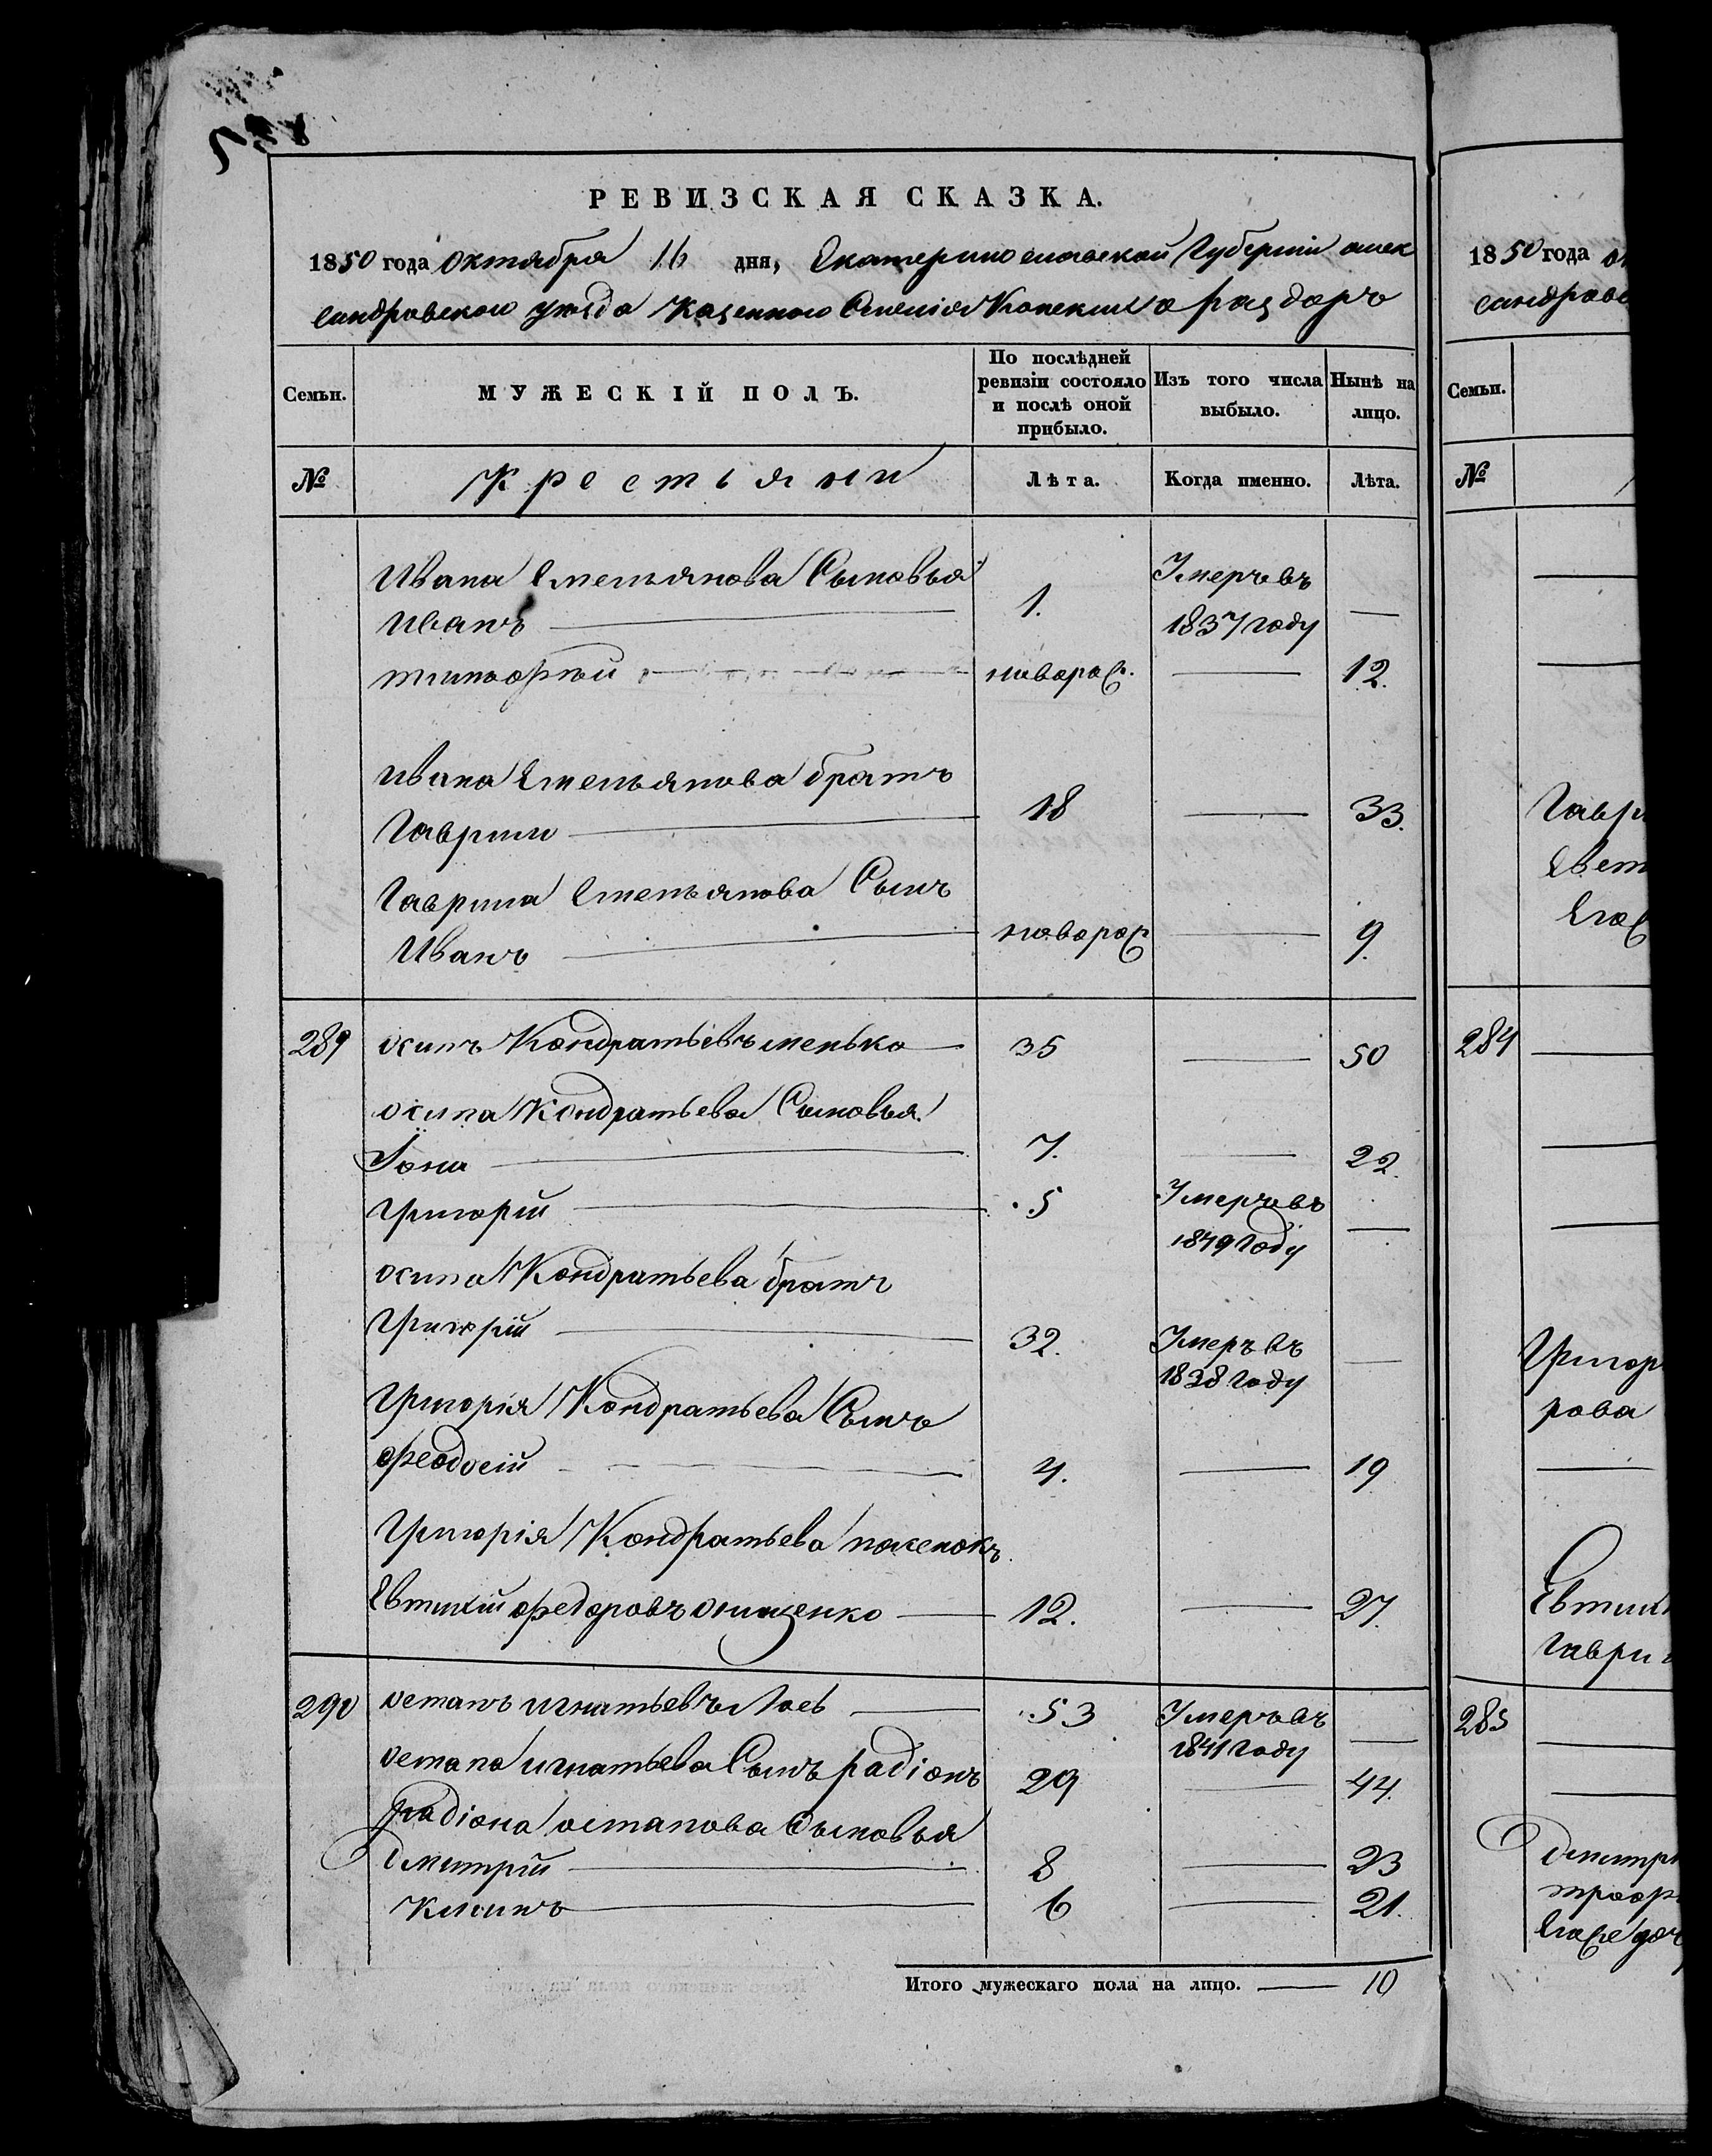 РЕВИЗСКАЯ СКАЗКА.
1850 года октября 16 дня, Екатеринославской Губернiи алек
сандровского уезда казенного Селенiя Конских раздоръ
Семьи.
МУЖЕСКІЙ ПОЛЪ.
По послѣдней ревизіи состояло и послѣ оной прибыло.
Изъ того числа выбыло.
Нынѣ на лицо.
№
Крестьяни
Лѣта.
Когда именно.
Лѣта.
Ивана Емельянова Сыновья
Иванъ 1. Умеръ въ 1837 году
тимофей новорож. 12.
Ивана Емельянова братъ
Гаврило 18 33.
Гаврила Емельянова Сынъ
Иванъ новорож 9.
289 осипъ Кондратьевъ Менько 35 50
осипа Кондратьева Сыновья
Іона 7. 22.
Григорій 5 Умеръ въ 1849 году
осипа Кондратьева братъ
Григорій 32. Умеръ въ 1838 году
Григорія Кондратьева Сынъ
феодосій 4. 19
Григорія Кондратьева
Евтихій федоровъ Онищенко 12. 27.
290 остапъ игнатьевъ 53 Умеръ въ 1841 году
остапа игнатьева Сынъ радіонъ 29 44.
радіона остапова Сыновья
Дмитрій 8 23
Климъ 6 21.
Итого мужескаго пола на лицо. 10
1850 года
сандровс
Семьи.
№
Гаври
284
Григор
рова
Евтих
Гаври
285
Дмитрі